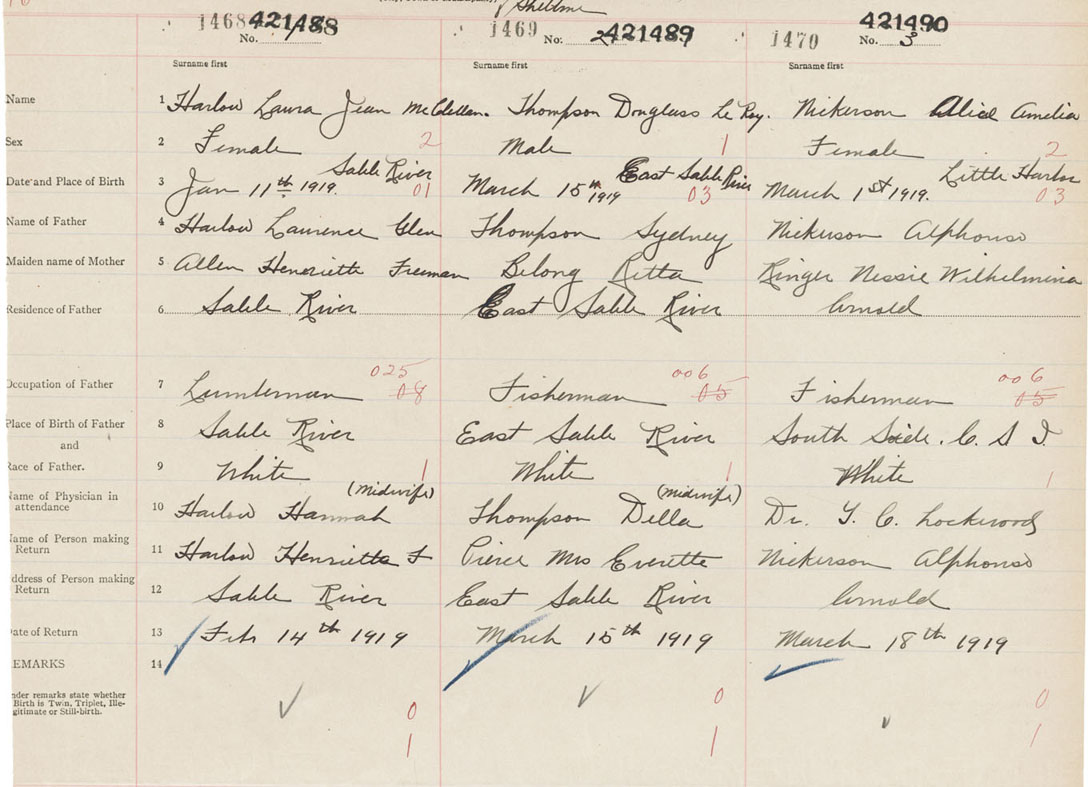 Shelburne
1468 421488 1469 421489 1470 421490
No. 1 No. 2 No. 3
Surname first Surname first Surname first
Name 1 Harlow Laura Jean McClellan. Thompson Douglass Le Roy. Nickerson Alice Amelia
Sex 2 Female 2 Male 1 Female 2
Sable River East Sable River Little Harbor
Date and Place of Birth 3 Jan 11th 1919. 01 March 15th 1919 03 March 1st 1919. 03
Name of Father 4 Harlow Laurence Glen Thompson Sydney Nickerson Alphonso
Maiden name of Mother 5 Allen Henriette Freeman Belong Retta Ringer Nessie Wilhelmina
Residence of Father 6 Sable River East Sable River Arnold
025 006 006
Occupation of Father 7 Lumberman 08 Fisherman 05 Fisherman 05
Place of Birth of Father 8 Sable River East Sable River South Side. C. S I.
and
Race of Father. 9 White 1 White 1 White 1
(Midwife) (Midwife)
Name of Physician in
attendance 10 Harlow Hannah Thompson Della Dr. Lockwood
Name of Person making
Return 11 Harlow Henrietta F Pierce Mrs Everette Nickerson Alphonso
Address of Person making
Return 12 Sable River East Sable River Arnold
Date of Return 13 Feb 14th 1919 March 15th 1919 March 18th 1919
REMARKS 14
Under remarks state whether
Birth is Twin, Triplet, Ille-
gitimate or Still-birth.
0 0 0
1 1 1